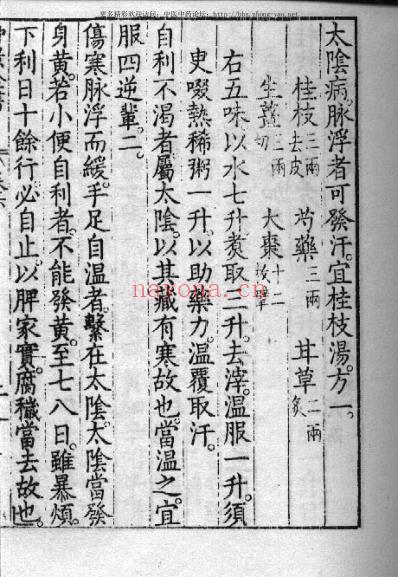 更多精彩欢迎访问：中医中药论坛：http://bbs.zhong-yao.net
太陰病。脉浮者可發汗。宜桂枝湯。方一。
桂枝三兩去皮 芍藥三兩 甘草二兩炙
生薑三兩切 大棗十二枚擘
右五味以水七升。煑取三升。去滓。溫服一升。須
臾啜熱稀粥一升。以助藥力。溫覆取汗。
自利不渴者屬太陰。以其藏有寒故也。當溫之。宜
服四逆輩。二。
傷寒脉浮而緩。手足自溫者。繫在太陰。太陰當發
身黃。若小便自利者。不能發黃。至七八日。雖暴煩。
下利日十餘行必自止。以脾家實。腐穢當去故也。
nayona.cn